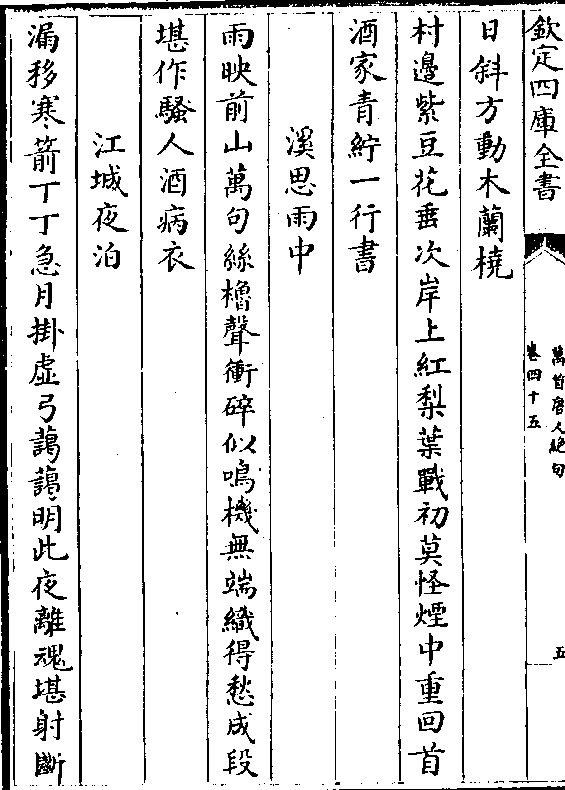 欽定四庫全書
萬首唐人絶句
卷四十五
五
日斜方動木蘭橈
村邊紫豆花垂次岸上紅梨葉戰初莫怪煙中重回首
酒家青紵一行書
溪思雨中
雨映前山萬句絲櫓聲衝碎似鳴機無端織得愁成段
堪作騷人酒病衣
江城夜泊
漏移寒箭丁丁急月掛虛弓藹藹明此夜離魂堪射斷